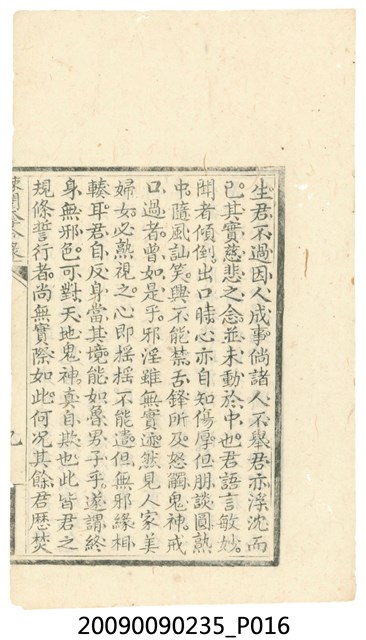 生君不過因人成事倘諸人不舉君亦浮沈而
已其實慈悲之念並未動於中也君語言敏妙
聞者傾倒出口時心亦自知傷厚但朋談圓熟
中隨風訕笑興不能禁舌鋒所及怒觸鬼神戒
口過者曾如是乎邪淫雖無實迹然見人家美
婦女必熟視之心即搖搖不能遣但無邪緣相
輳耳君自反身當其境能如魯男子乎遂謂終
身無邪色可對天地鬼神真自欺也此皆君之
規條誓行者尚無實際如此何況其餘君歷焚
20090090235_P016